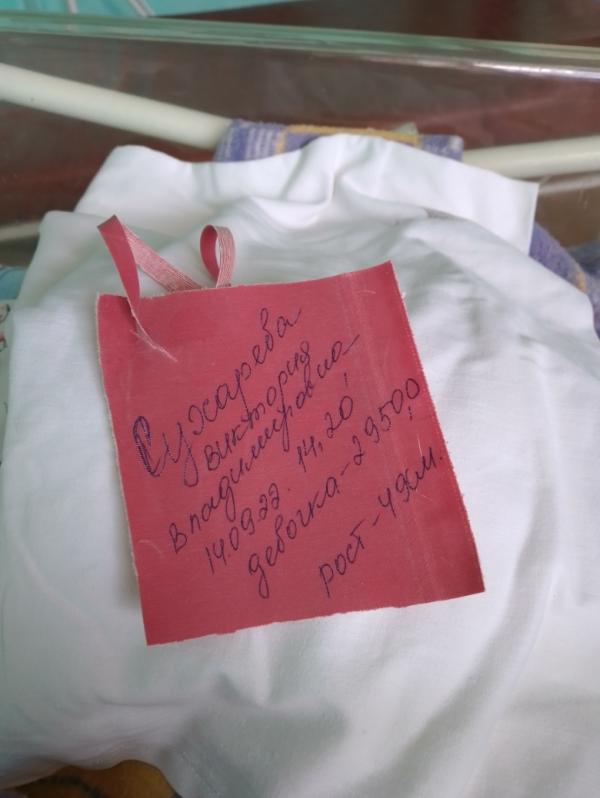 Сухарева
виктория
владимировна
14.09.22. 14,20,
девочка - 2950,0
рост - 49см.